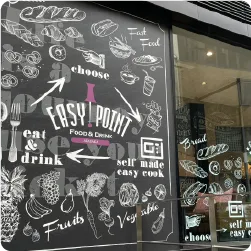 Fast
Food
choose
EASY POINT
Food & Drink
eat
&
drink
self made
easy cook
Bread
Fruits
Vegetable
self
easy